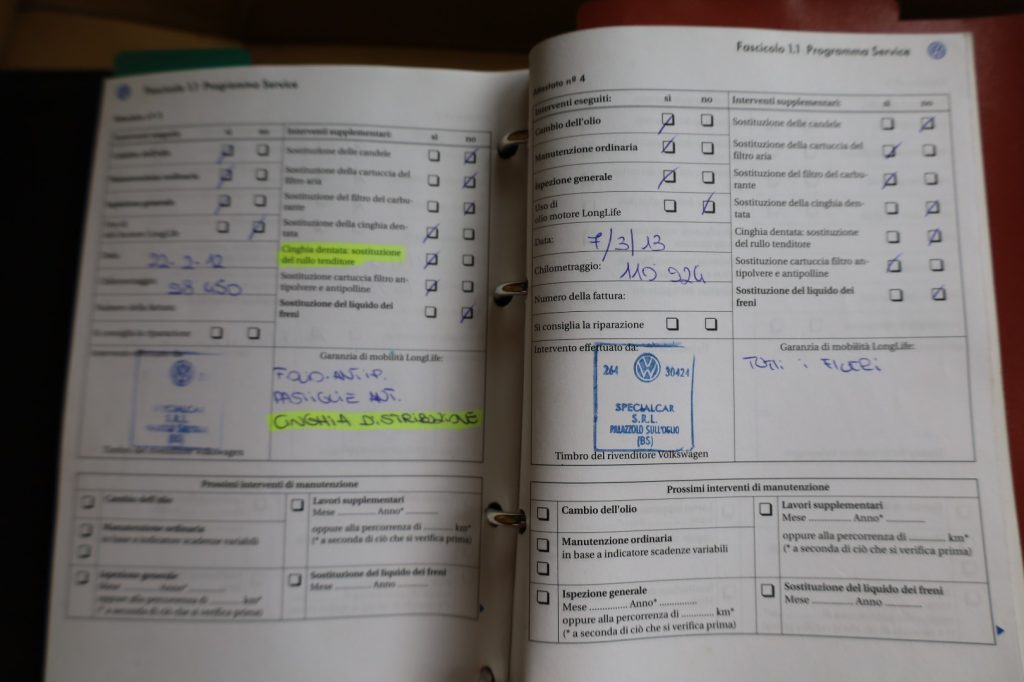 Fascicolo 1.1 Programma Service
Interventi eseguiti: sì no
Cambio dell'olio
Manutenzione ordinaria
Ispezione generale
Uso di
olio motore LongLife
Data: 22-2-12
Chilometraggio: 98 450
Numero della fattura:
Si consiglia la riparazione
Interventi supplementari: sì no
Sostituzione delle candele
Sostituzione della cartuccia del
filtro aria
Sostituzione del filtro del carbu-
rante
Sostituzione della cinghia den-
tata
Cinghia dentata: sostituzione
del rullo tenditore
Sostituzione cartuccia filtro an-
tipolvere e antipolline
Sostituzione del liquido dei
freni
Garanzia di mobilità LongLife:
PASTIGLIE ANT.
CINGHIA DISTRIBUZIONE
SPECIALCAR
S.R.L.
(BS)
Timbro del rivenditore Volkswagen
Prossimi interventi di manutenzione
Cambio dell'olio
Manutenzione ordinaria
in base a indicatore scadenze variabili
Ispezione generale
Mese Anno*
oppure alla percorrenza di km*
(* a seconda di ciò che si verifica prima)
Lavori supplementari
Mese Anno*
oppure alla percorrenza di km*
(* a seconda di ciò che si verifica prima)
Sostituzione del liquido dei freni
Mese Anno
Fascicolo 1.1 Programma Service
Attestato nº 4
Interventi eseguiti: sì no
Cambio dell'olio
Manutenzione ordinaria
Ispezione generale
Uso di
olio motore LongLife
Data: 7/3/13
Chilometraggio: 110 924
Numero della fattura:
Si consiglia la riparazione
Interventi supplementari: sì no
Sostituzione delle candele
Sostituzione della cartuccia del
filtro aria
Sostituzione del filtro del carbu-
rante
Sostituzione della cinghia den-
tata
Cinghia dentata: sostituzione
del rullo tenditore
Sostituzione cartuccia filtro an-
tipolvere e antipolline
Sostituzione del liquido dei
freni
Intervento effettuato da:
264 30424
SPECIALCAR
S.R.L.
PALAZZOLO SULL'OGLIO
(BS)
Timbro del rivenditore Volkswagen
Garanzia di mobilità LongLife:
TUTTI i FILTRI
Prossimi interventi di manutenzione
Cambio dell'olio
Manutenzione ordinaria
in base a indicatore scadenze variabili
Ispezione generale
Mese Anno*
oppure alla percorrenza di km*
(* a seconda di ciò che si verifica prima)
Lavori supplementari
Mese Anno*
oppure alla percorrenza di km*
(* a seconda di ciò che si verifica prima)
Sostituzione del liquido dei freni
Mese Anno